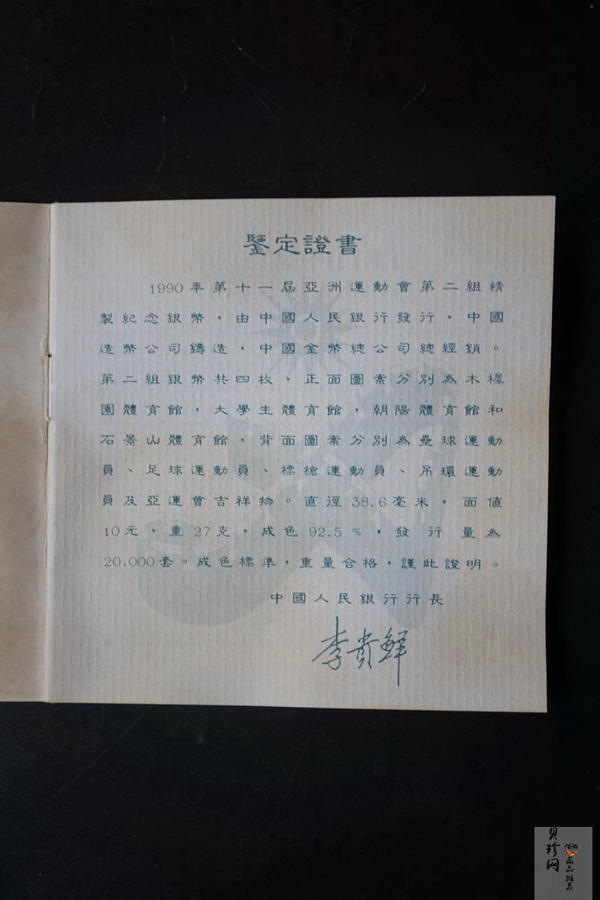 鑒定證書
1990年第十一屆亞洲運動會第二組精
製紀念銀幣，由中國人民銀行發行，中國
造幣公司鑄造，中國金幣總公司總經銷。
第二組銀幣共四枚，正面圖案分別為木樨
園體育館，大學生體育館，朝陽體育館和
石景山體育館，背面圖案分別為壘球運動
員、足球運動員、標槍運動員、吊環運動
員及亞運會吉祥物。直徑38.6毫米，面值
10元，重27克，成色92.5%，發行量為
20.000套。成色標準，重量合格，謹此證明。
中國人民銀行行長
李貴鮮
貝珍网
藏品推荐